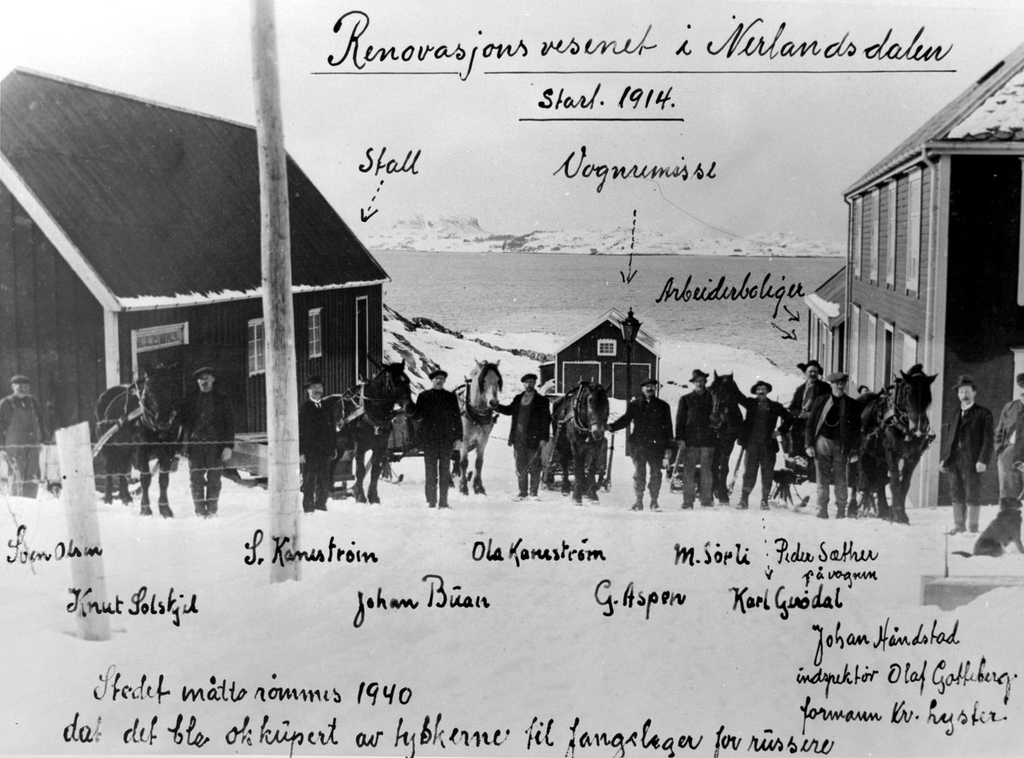 Renovasjons vesenet i Nerlandsdalen
Start. 1914.
Stall
Vognremisse
Arbeiderboliger
Sven Olsen
S. Kanestrøm
Ola Kanestrøm
M. Sörli
Peder Sæther
på vognen
Knut Solskjel
Johan Buan
G. Aspen
Karl Gusdal
Johan Håndstad
indspektör Olaf Gotteberg.
formann Kr. Lyster.
Stedet måtte rømmes 1940
dat det ble okkupert av tyskerne til fangeleger for russere